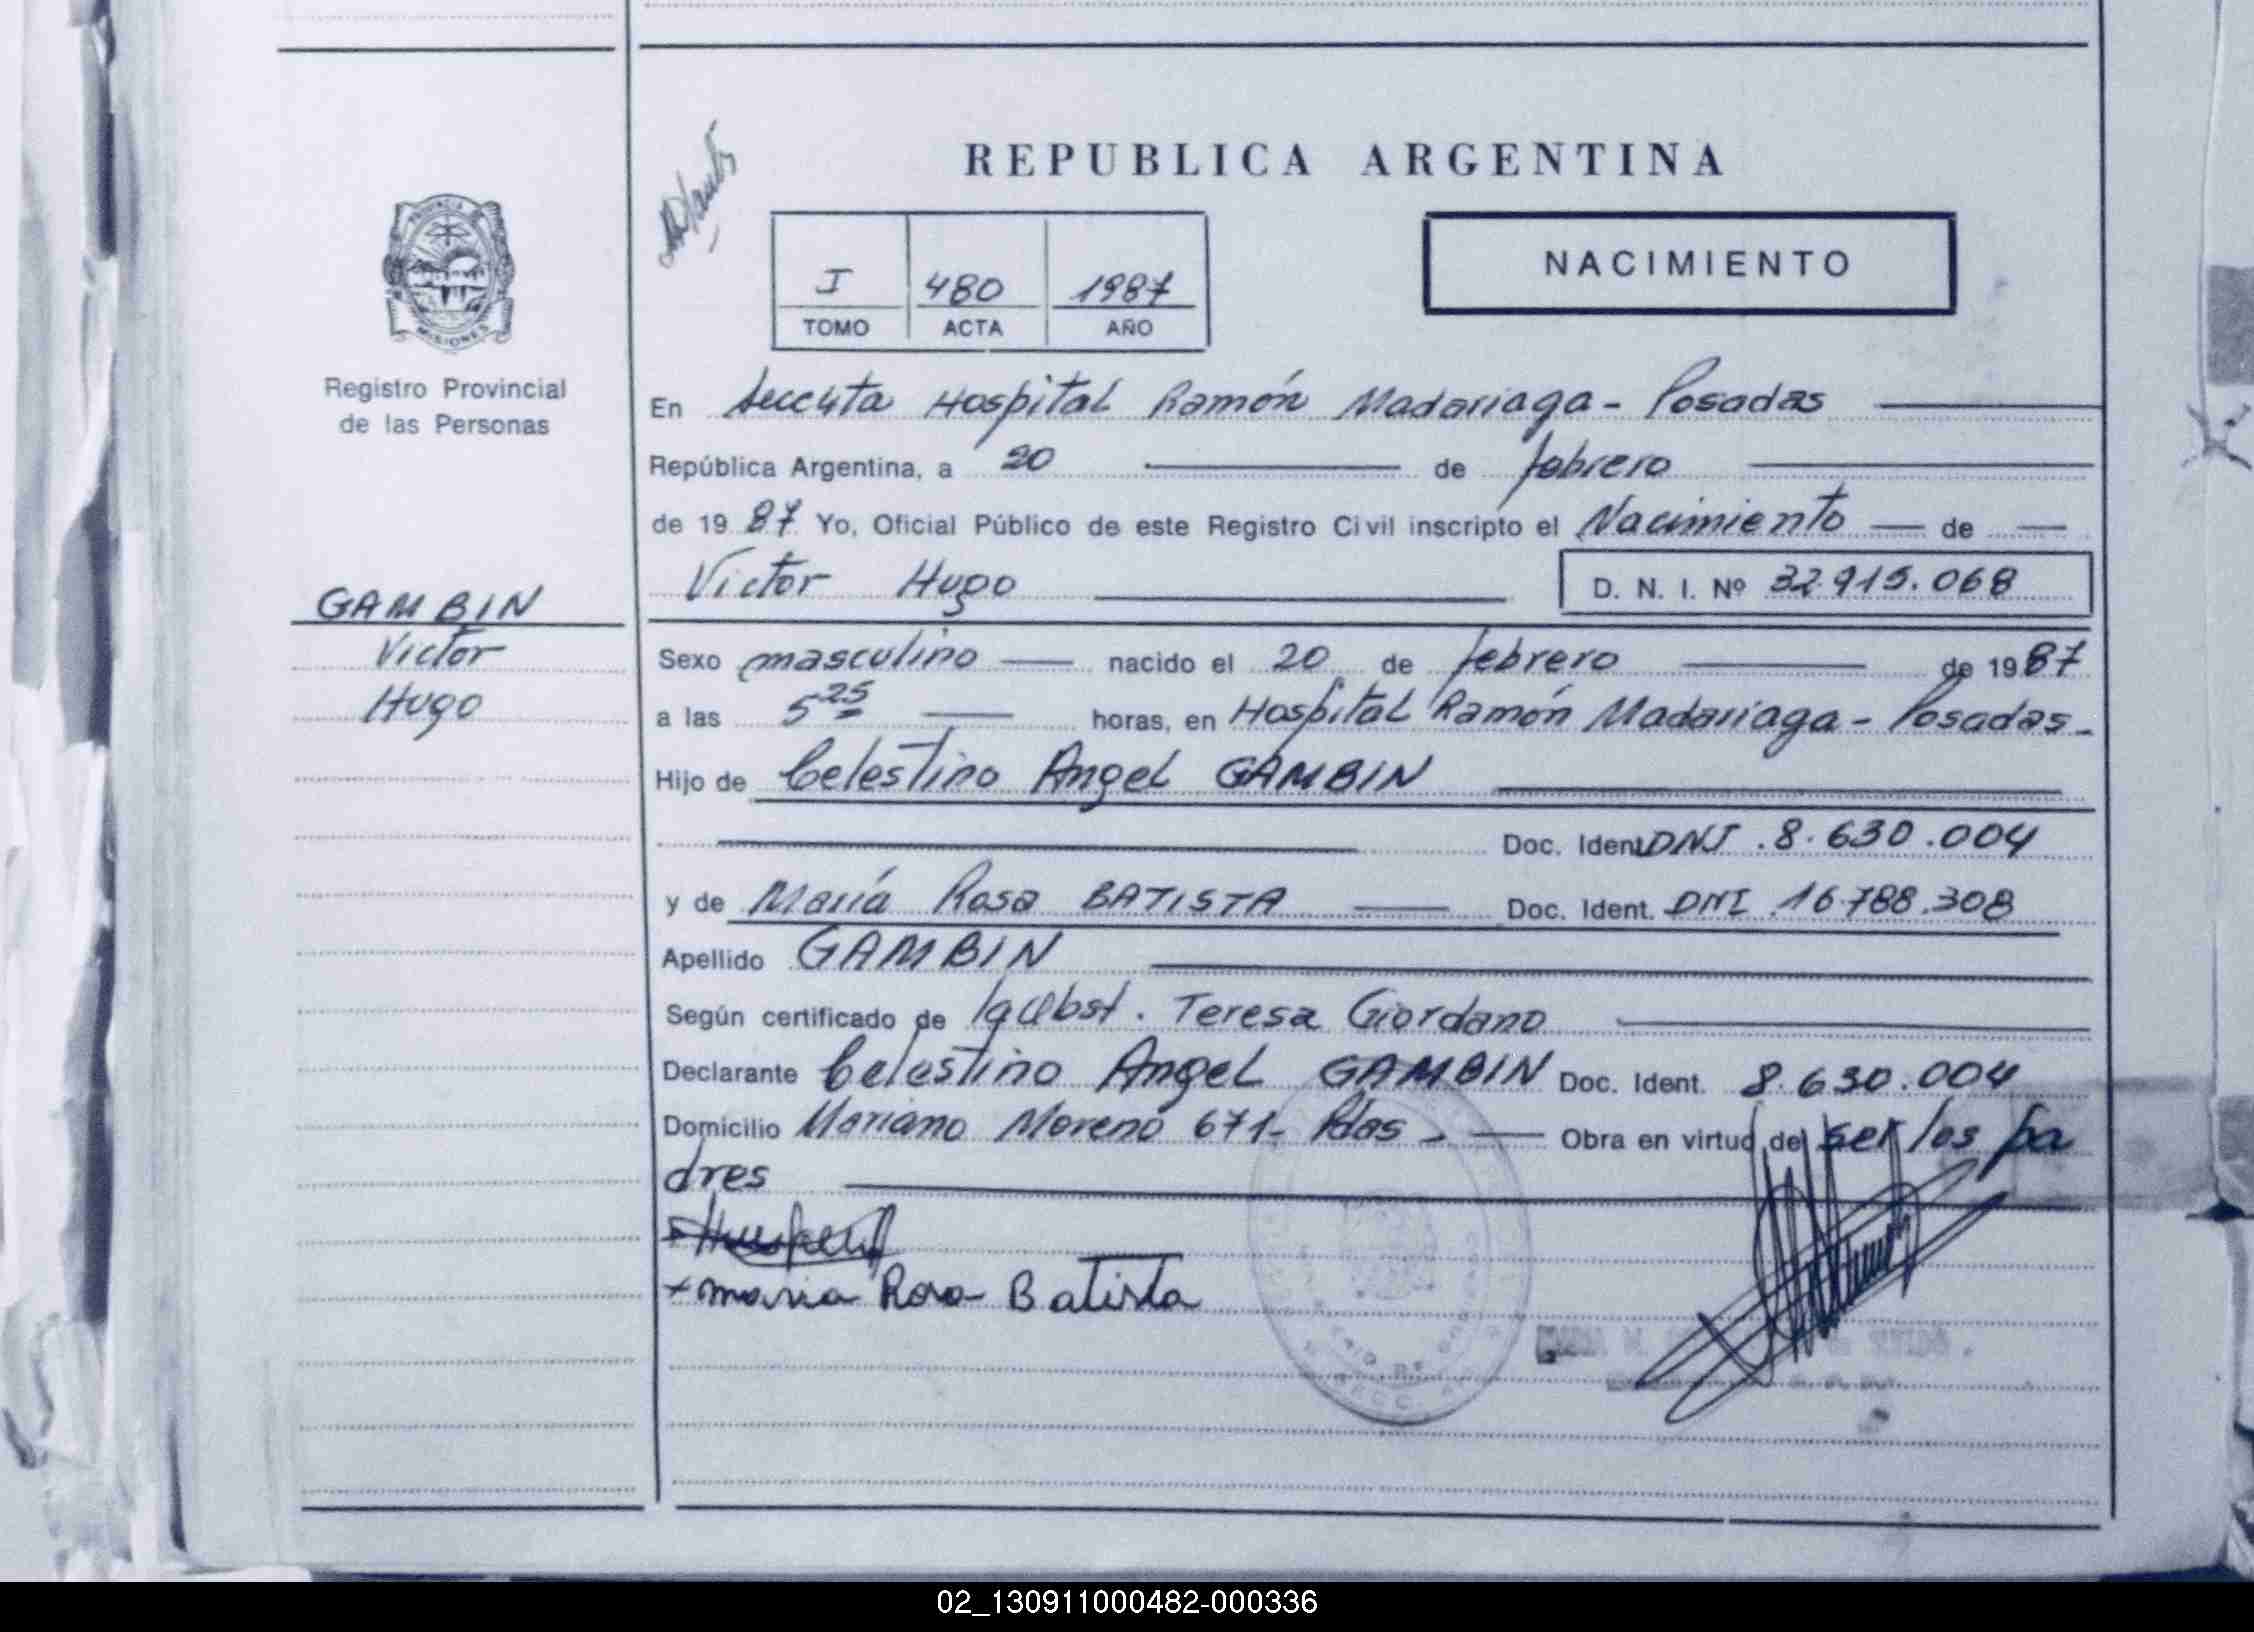 REPUBLICA ARGENTINA
PROVINCIA DE
MISIONES
Registro Provincial
de las Personas
NACIMIENTO
I 480 1987
TOMO ACTA AÑO
En Hospital Ramón Madariaga - Posadas
República Argentina, a 20 de febrero
de 1987 Yo, Oficial Público de este Registro Civil inscripto el Nacimiento de
Victor Hugo D. N. I. Nº 32.915.068
GAMBIN
Victor
Hugo
Sexo masculino nacido el 20 de febrero de 1987
a las 5 25 horas, en Hospital Ramón Madariaga - Posadas -
Hijo de Celestino Angel GAMBIN
Doc. Ident DNI .8.630.004
y de María Rosa BATISTA Doc. Ident. DNI .16.788.308
Apellido GAMBIN
Según certificado de Teresa Giordano
Declarante Celestino Angel GAMBIN Doc. Ident. 8.630.004
Domicilio Mariano Moreno 671- Pdas - Obra en virtud de ser los pa
dres
+ maria Rosa Batista
02_130911000482-000336